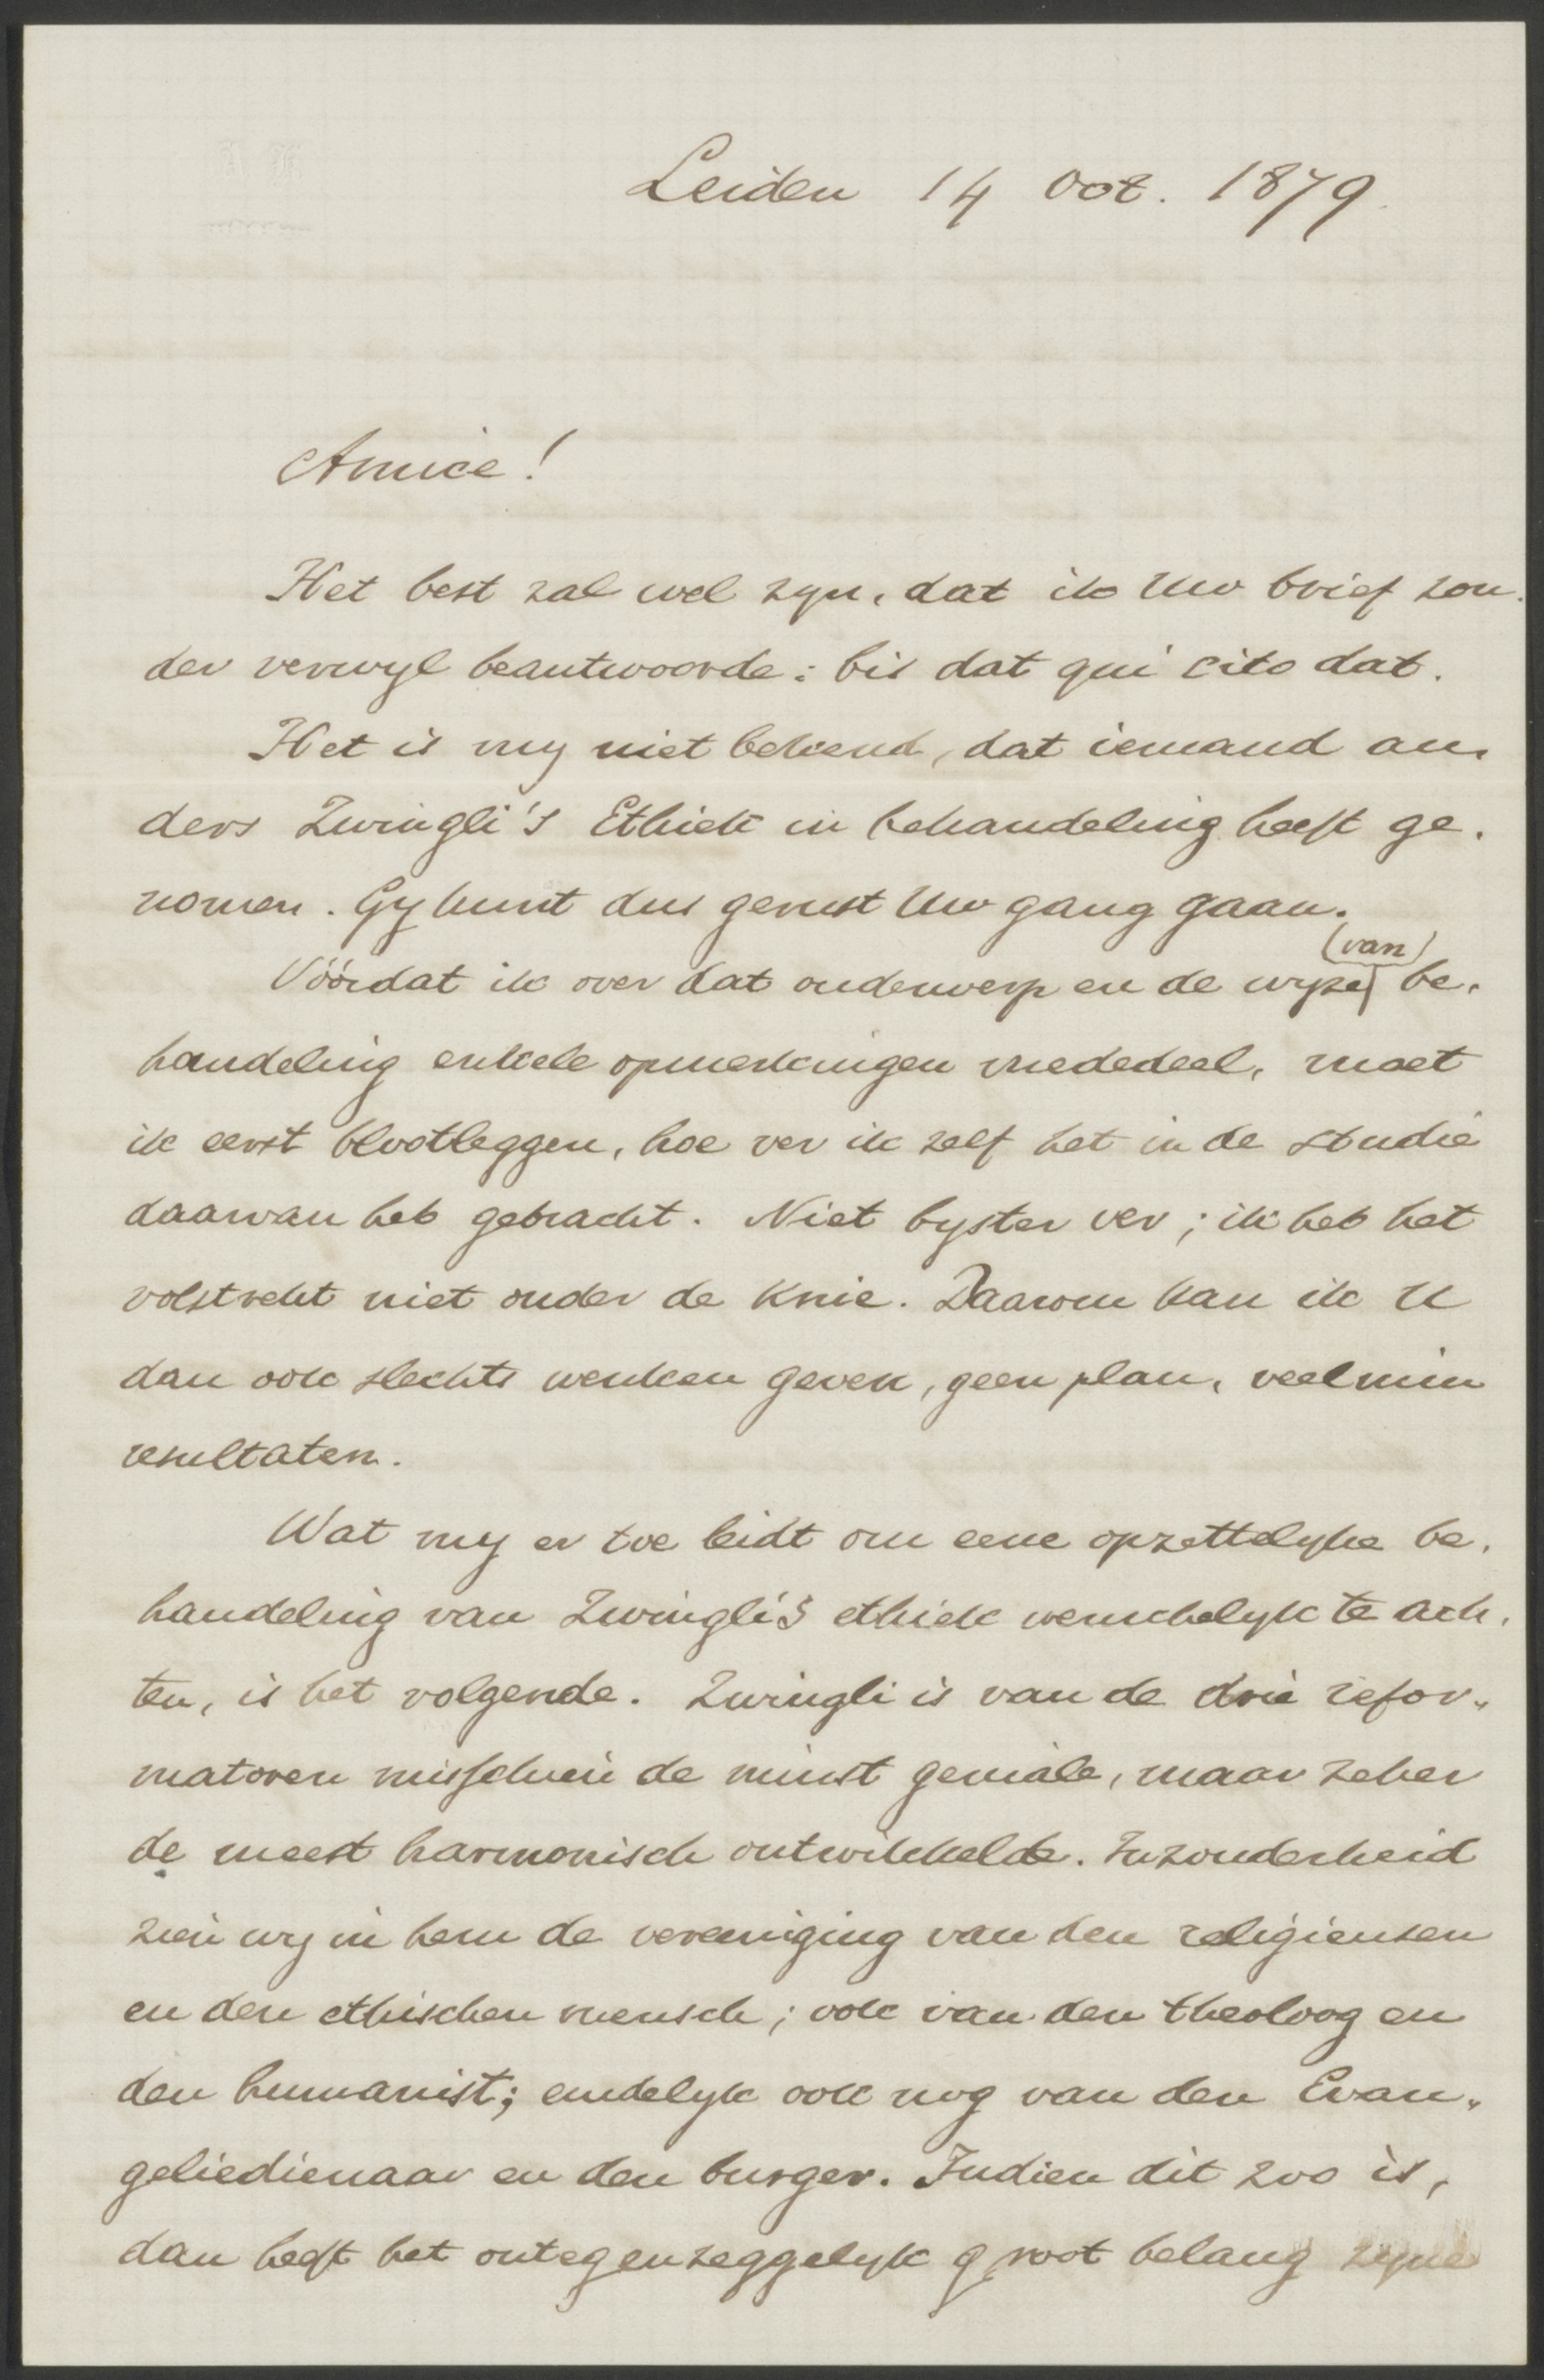 Leiden 14 Oct. 1879.
Amice!
Het best zal wel zyn, dat ik Uw brief zon-
der verwyl beantwoorde: bis dat qui cito dat.
Het is my niet bekend, dat iemand an-
ders Zwingli's Ethiek in behandeling heeft ge-
nomen. Gy kunt dus gerust Uw gang gaan.
(van)
Vóórdat ik over dat onderwerp en de wyze be-
handeling enkele opmerkingen mededeel, moet
ik eerst blootleggen, hoe ver ik zelf het in de studie
daarvan heb gebracht. Niet byster ver; ik heb het
volstrekt niet onder de knie. Daarom kan ik U
dan ook slechts wenken geven, geen plan, veelmin
resultaten.
Wat my er toe leidt om eene opzettelyke be-
handeling van Zwingli's ethiek wenschelyk te ach-
ten, is het volgende. Zwingli is van de drie refor-
matoren misschien de minst geniale, maar zeker
de meest harmonisch ontwikkelde. Inzonderheid
zien wy in hem de vereeniging van den religieusen
en den ethischen mensch; ook van den theoloog en
den humanist; eindelyk ook nog van den Evan-
geliedienaar en den burger. Indien dit zoo is,
dan heeft het ontegenzeggelyk groot belang zyne